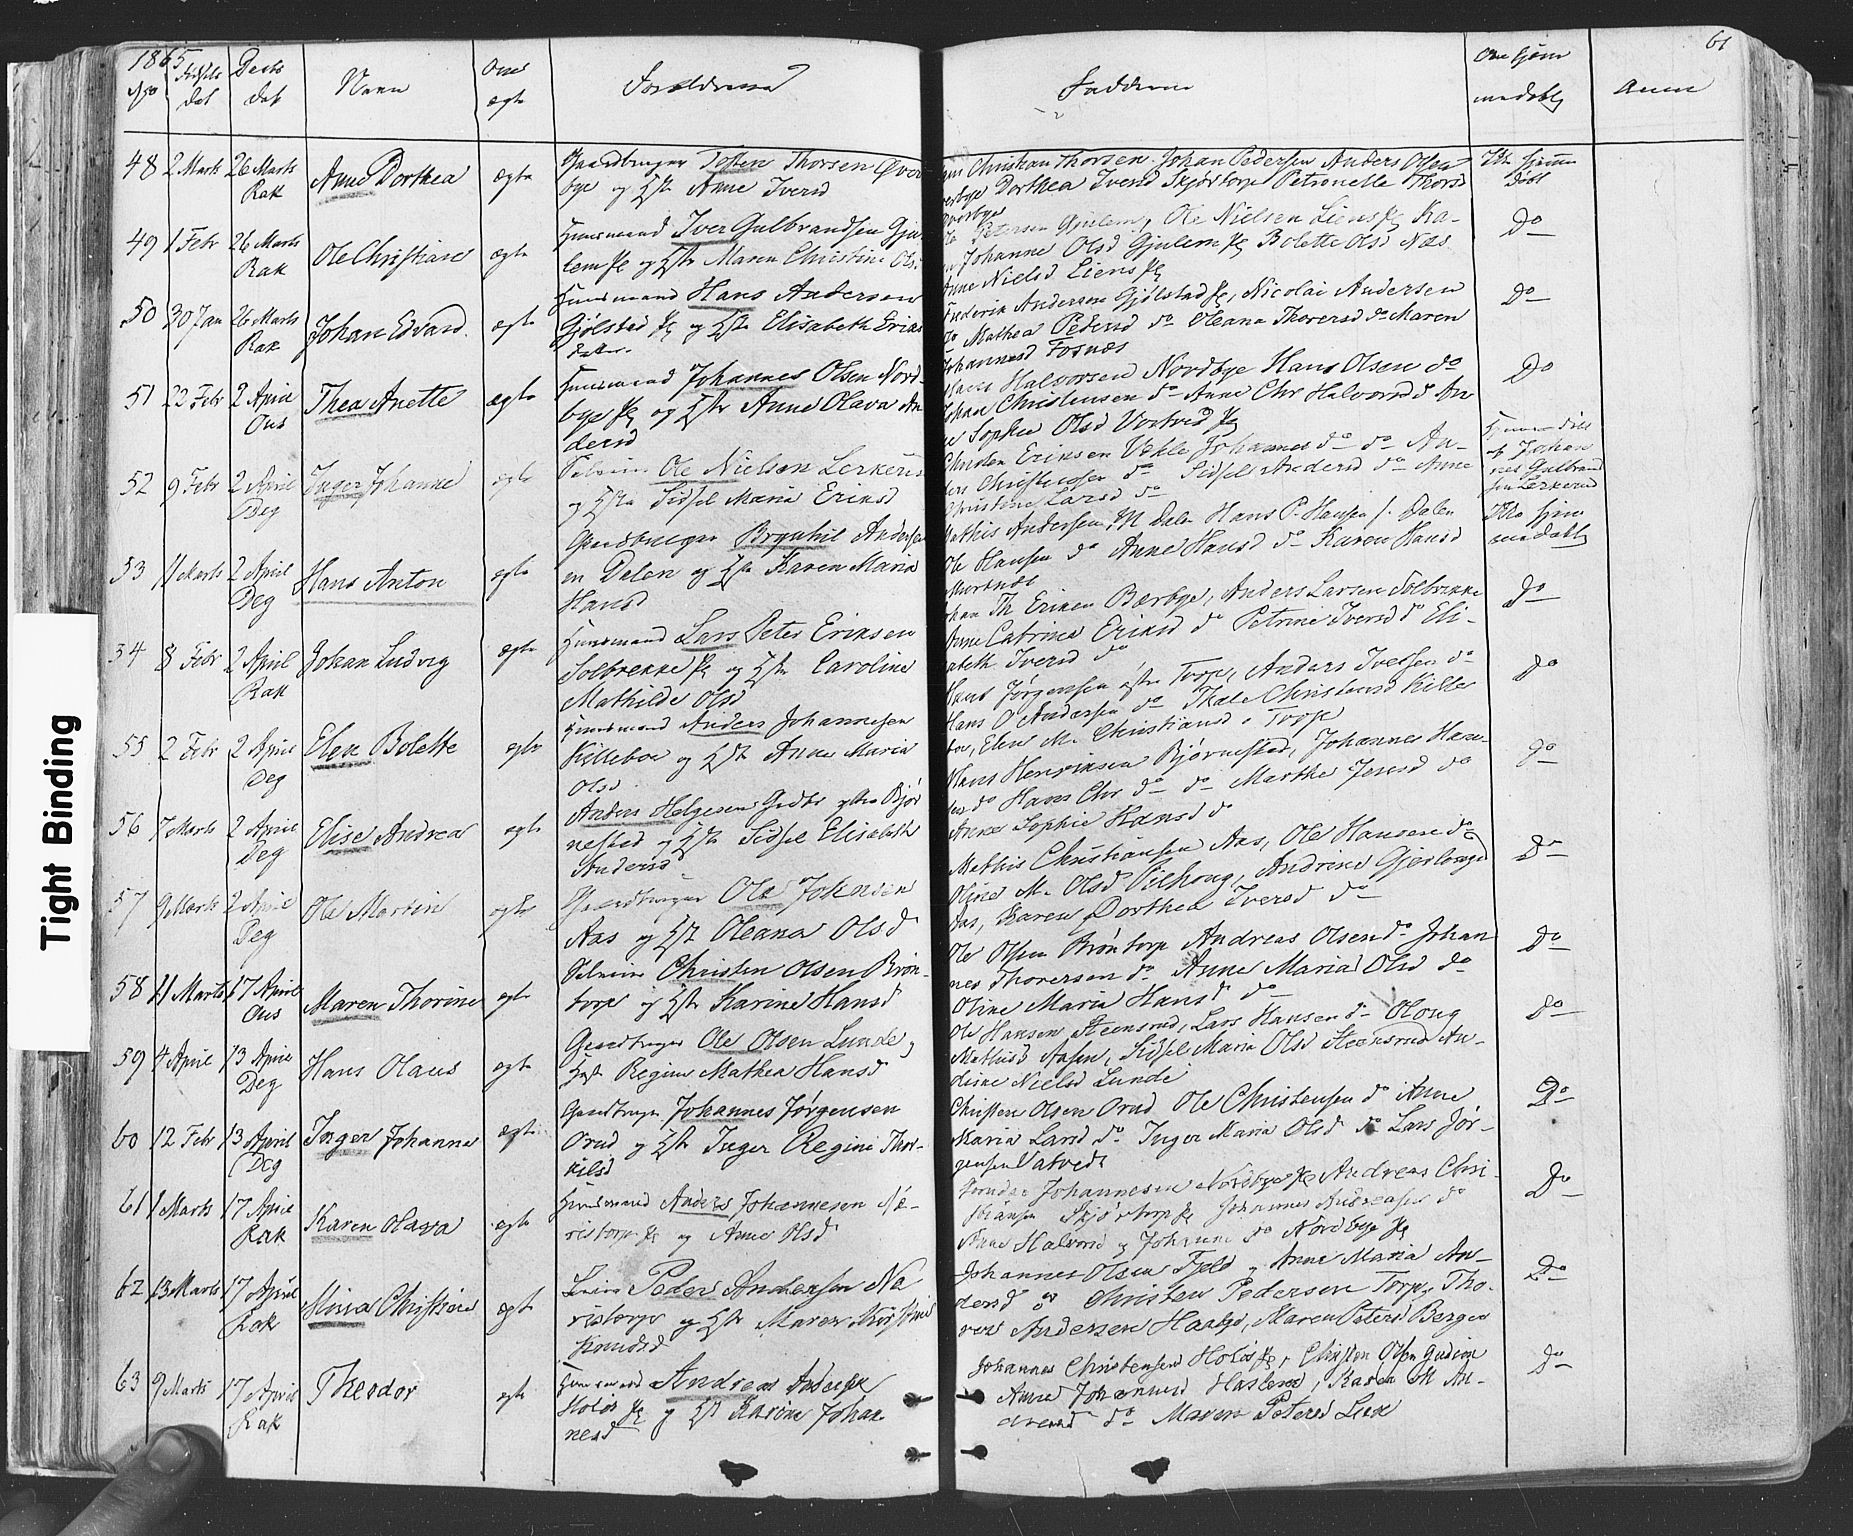 1865
No
Fødsels
dat
Daabs
dat
Navn
Om
ægte
Forældrene
Fadderne
Om hjem
medøbt
Anm
61
48 2 Marts 26 Marts Rak
Anne Dorthea
ægte
Gaardbruger Torsten Thorsen Øver
bye og Hst Anne Iversd
Christian Thorsen Johan Pedersen Anders Olsen
Dorthea Iversd Skjørtorp Petronelle Thorsd
Øverbye
Ikke hjemme
døbt
49 1 Febr 26 Marts Rak
Ole Christian
ægte
Huusmand Iver Gulbrandsen Gju
lem /e og Hst Maren Christine Ols
Petersen Gjulem, Ole Nielsen Liens /e Ka-
Johanne Olsd Gjulem /e Bolette Olsd Næs
Anne Nielsd Liens /e
Do
50 30 Jan 26 Marts Rak
Johan Edvard.
ægte
Huusmand Hans Andersen
Gjølstad /e og Hst Elisabeth Eriks
datter.
Frederik Andersen Gjølstad /e, Nicolai Andersen
do Mathea Pedersd do Oleana Thoversd do Maren
Johannesd Fosnæs
Do
51 22 Febr 2 April Ous
Thea Anette
ægte
Huusmand Johannes Olsen Nord-
bye /e og Hst Anne Olava An
dersd
Hans Halvorsen Nordbye Hans Olsen do
Johan Christensen do Anne Chr Halvorsd do An
ne Sophie Olsd Vestvid /e
Do
52 9 Febr 2 April Deg
Inger Johanne
ægte
Selveier Ole Nielsen Lerkerud
og Hst Sidsel Maria Eriksd
Christen Eriksen Vekle Johannes do do An-
ders Christensen do Sidsel Andersd do Anne
Christine Larsd do
Hjemmedøbt
af Johan
nes Gulbrand
sen Lerkerud
53 11 Marts 2 April Deg
Hans Anton
ægte
Gaardbruger Brynhil Anders
en Dalen og Hst Karen Maria
Hansd
Mathis Andersen M Dalen Hans P. Hansen S. Dalen
Ole Hansen do Anne Hansd do Karen Hansd
Mortnæs
Ikke hjem
medøbt
54 8 Febr 2 April Rak
Johan Ludvig
ægte
Huusmand Lars Peter Eriksen
Solbrække /e og Hst Caroline
Mathilde Olsd
Johan Th Eriksen Bærbye, Anders Larsen Solbrække
Anne Catrine Eriksd do Petrine Iversd do Eli-
sabeth Iversd do
Do
55 2 Febr 2 April Deg
Elen Bolette
ægte
Huusmand Anders Johannesen
Killeboe og Hst Anne Maria
Olsd
Hans Jørgensen østre Torp, Anders Iversen do
Hans O Andersen do Thale Christensd Kille
boe, Elen M. Christiansd Torp
Do
56 7 Marts 2 April Deg
Elise Andrea
ægte
Anders Helgesen Gaardbr ytre Bjør
nestad og Hst Sidsel Elisabeth
Andersd
Hans Henriksen Bjørnestad, Johannes Han-
sen do Hans Chr do do Marthe Jensd do
Anne Sophie Hansd do
Do
57 9 Marts 2 April Deg
Ole Martin
ægte
Gaardbruger Ole Johansen
Aas og Hst Oleana Olsd
Mathis Christiansen Aas, Ole Hansen do
Oline M. Olsd Vilhoug, Andrine
Aas, Karen Dorthea Iversd do
Do
58 21 Marts 17 April Ous
Maren Thorine
ægte
Selveier Christen Olsen Brøn-
torp og Hst Karine Hansd
Ole Olsen Brøntorp Andreas Olsen do Johan
nes Thoversen do Anne Maria Olsd do
Oline Maria Hansd do
Do
59 4 April 13 April Deg
Hans Olaus
ægte
Gaardbruger Ole Olsen Lunde og
Hst Regine Mathea Hansd
Ole Hansen Steensrud, Lars Hansen do Oloug
Mathisd Aasen, Sidsel Maria Olsd Steensrud An-
drine Nielsd Lunde
Do
60 12 Febr 13 April Deg
Inger Johanne
ægte
Gaardbruger Johannes Jørgensen
Orud og Hst Inger Regine Thor-
kilsd
Christen Olsen Orud Ole Christensen do Anne
Karia Larsd do Inger Maria Olsd do Lars Jør-
gensen Vatvedt
Do
61 1 Marts 17 April Rak
Karen Olava
ægte
Huusmand Anders Johannesen Næ-
ristorp /e og Anne Olsd
Johannesen Nordbye /e Andreas Chri-
stiansen Skjørtorp /e Johannes Andreasen do
Anne Halvorsd og Johanne do Nordbye /e
Do
62 13 Marts 17 April Rak
Mina Christine
ægte
Peder Andersen Næ
ristorp og Hst Maren Kirstine
Knudsd
Johannes Olsen Fjeld og Anne Maria An-
dersd Christen Pedersen Torp, Tho-
ver Andersen Haabye, Maren Petersd Berger
Do
63 9 Marts 17 April Rak
Theodor
ægte
Huusmand Andreas Andersen
Holøs /e og Hst Karine Johan
nesd
Johannes Christensen Holøs /e, Christen Olsen
Anne Johannesd Haslerud, Karen M An-
dreasd do Maren Petersd Lien
Do
Tight Binding